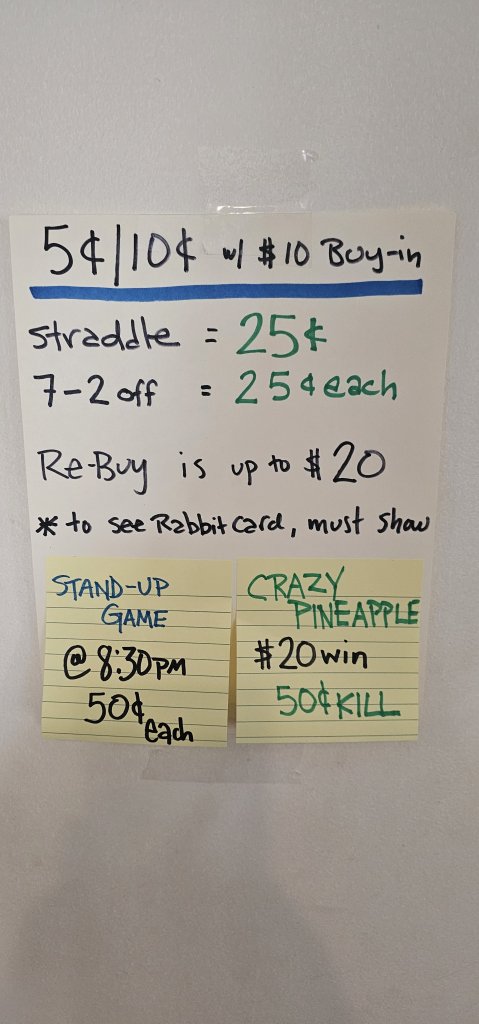 5¢/10¢ w/ $10 Buy-in
straddle = 25¢
7-2 off = 25¢ each
Re-Buy is up to $20
* to see Rabbit card, must show
STAND-UP
GAME
@ 8:30PM
50¢
each
CRAZY
PINEAPPLE
$20 win
50¢ KILL